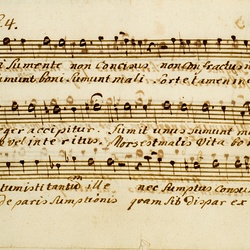 4.
Sumente non Concisus non Confractus
sumunt boni Sumunt mali Sorte tamen in
eger accipitur. Sumit unus sumunt m
vel interitus. Mors est malis Vita bon
tumisti tantum esse nec Sumptus Consu
de paris Sumptionis quam Sit dispar ex